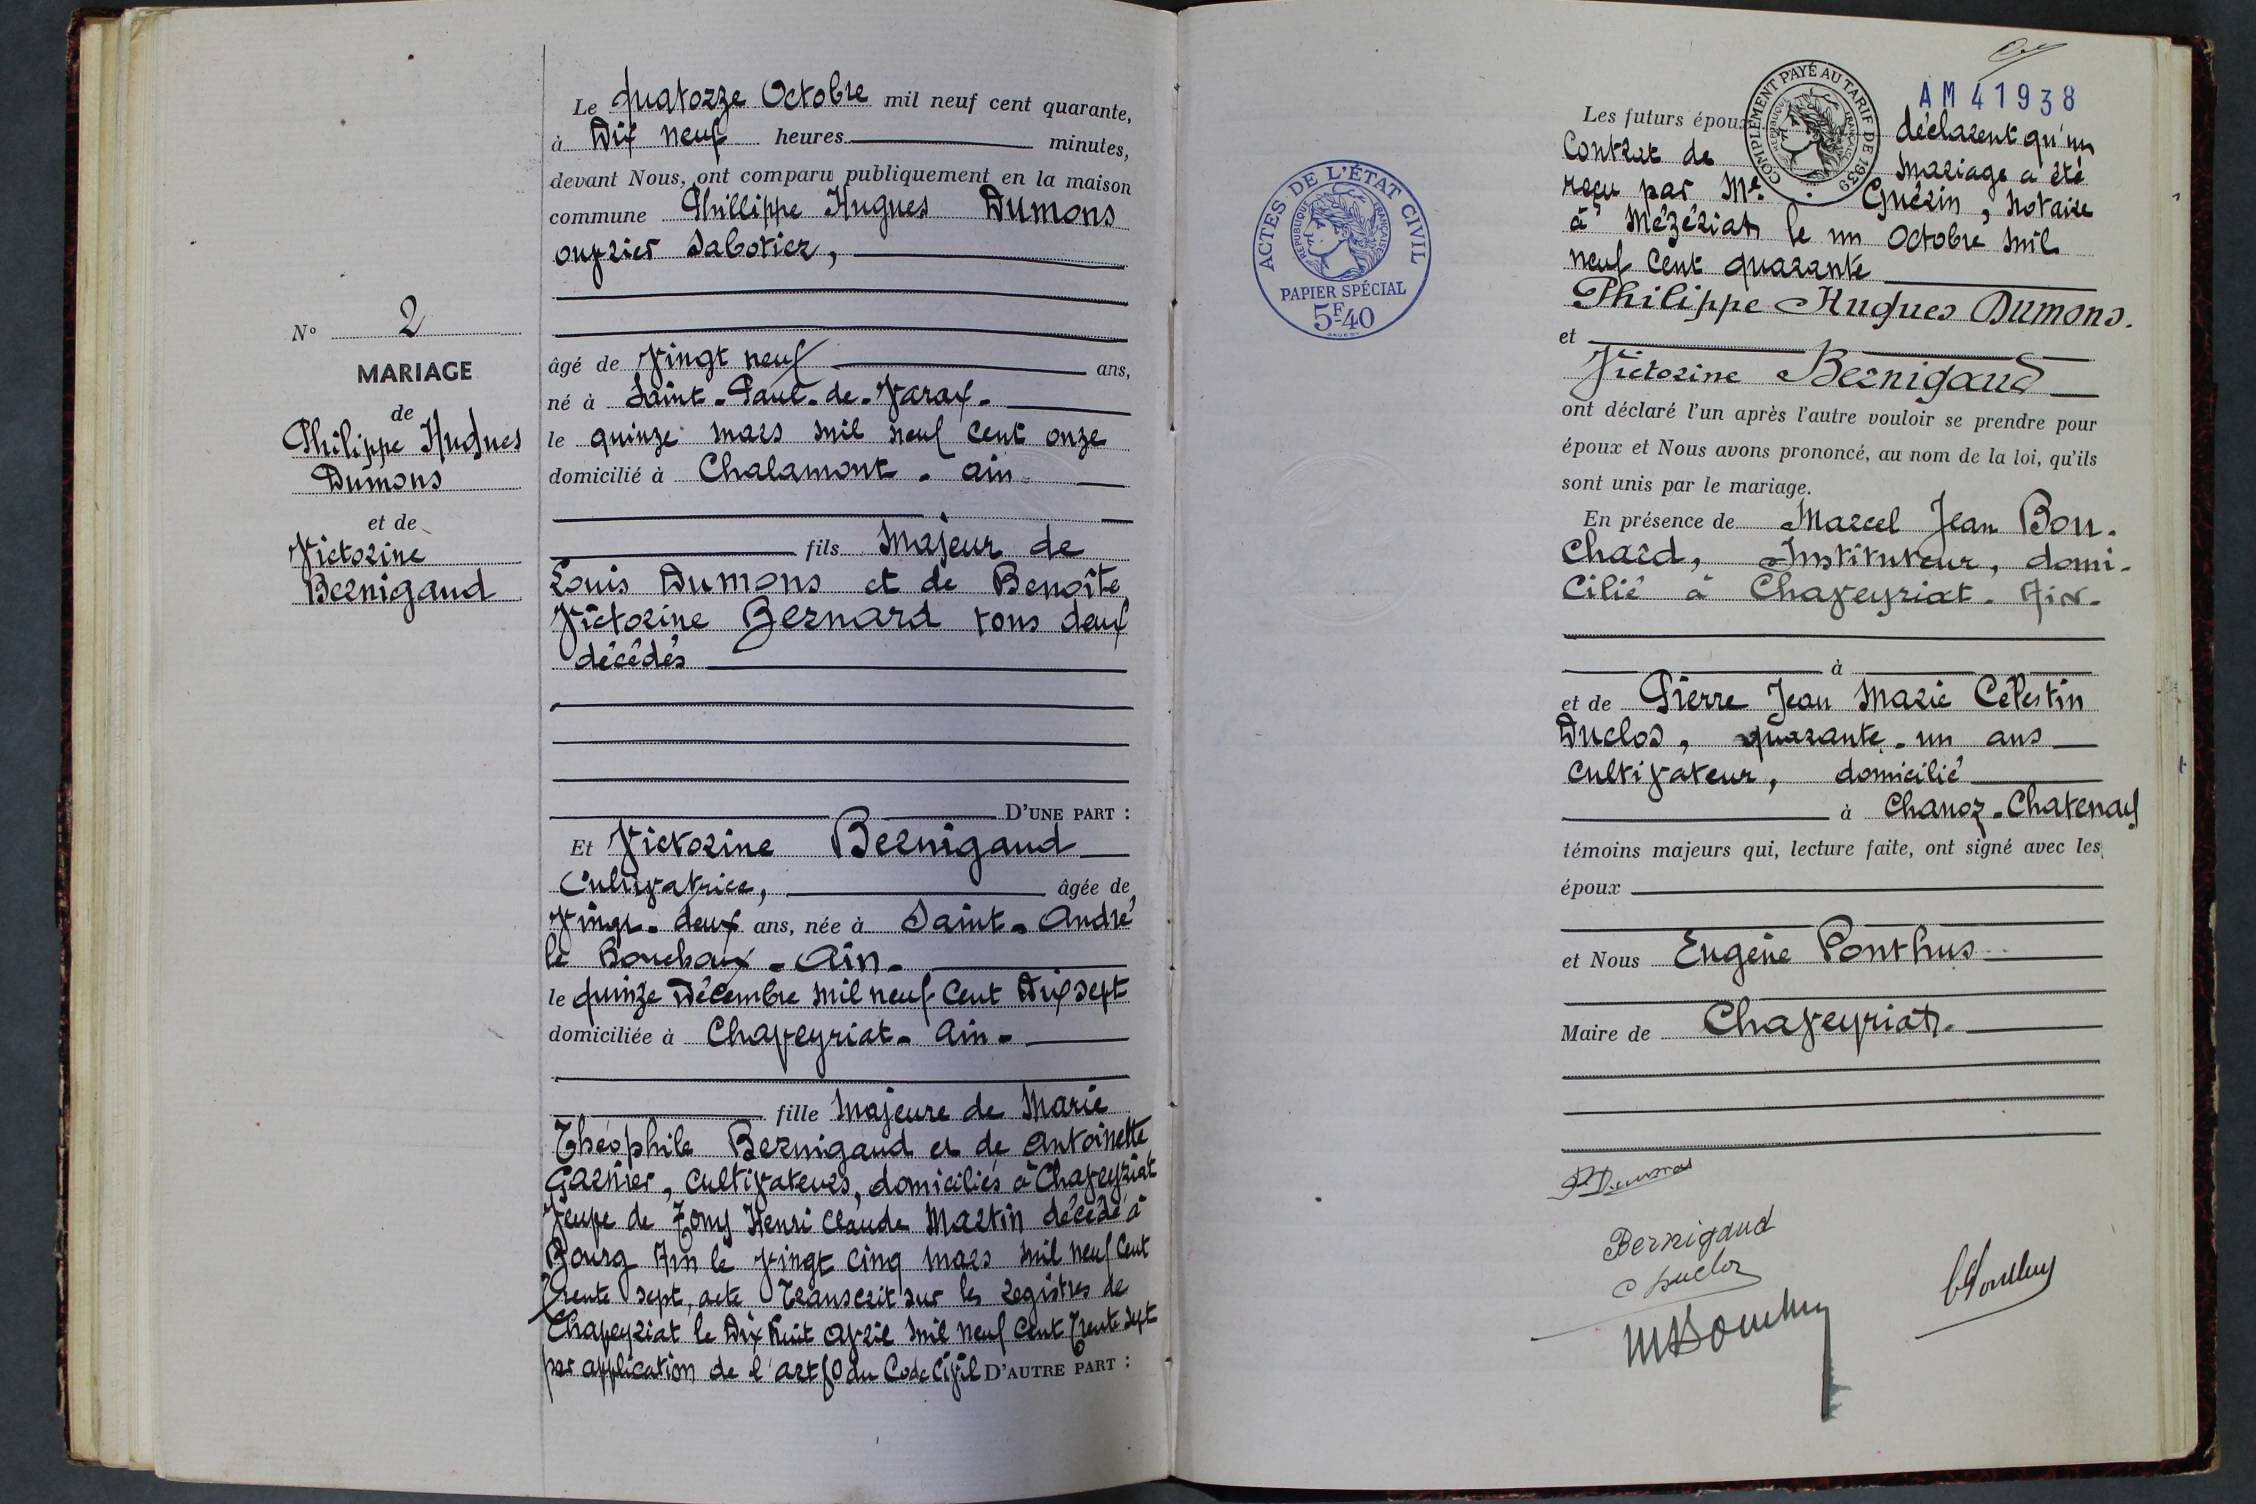 N° 2
MARIAGE
de
Philippe Hugues
Dumons
et de
Victorine
Bernigaud
Le quatorze Octobre mil neuf cent quarante,
à Dix neuf heures minutes,
devant Nous, ont comparu publiquement en la maison
commune Phillippe Hugues Dumons
ouvrier sabotier,
âgé de Vingt neuf ans,
né à Saint-Paul-de-Varax-
le quinze mars mil neuf cent onze
domicilié à Chalamont - Ain
fils Majeur de
Louis Dumons et de Benoîte
Victorine Bernard tous deux
décédés
D'UNE PART :
Et Victorine Bernigaud
Cultivatrice, âgée de
Vingt-deux ans, née à Saint-André
le Bouchoux - Ain -
le quinze Décembre mil neuf cent Dix sept
domiciliée à Chaveyriat - Ain -
fille Majeure de Marie
Théophile Bernigaud et de Antoinette
Garnier, cultivateurs, domiciliés à Chaveyriat
Veuve de Tony Henri Claude Martin décédé à
Bourg Ain le vingt cinq mars mil neuf cent
trente sept, acte transcrit sur les registres de
Chaveyriat le Dix huit avril mil neuf cent trente sept
par application de l'art 80 du Code Civil D'AUTRE PART :
ACTES DE L'ÉTAT CIVIL
RÉPUBLIQUE FRANÇAISE
PAPIER SPÉCIAL
5F40
COMPLÉMENT PAYÉ AU TARIF DE 1939
RÉPUBLIQUE FRANÇAISE
AM 41938
Les futurs époux déclarent qu'un
Contrat de mariage a été
reçu par Me Guérin, notaire
à Mézériat, le un Octobre mil
neuf cent quarante
Philippe Hugues Dumons.
et
Victorine Bernigaud
ont déclaré l'un après l'autre vouloir se prendre pour
époux et Nous avons prononcé, au nom de la loi, qu'ils
sont unis par le mariage.
En présence de Marcel Jean Bou-
chard, Instituteur, domi-
cilié à Chaveyriat - Ain -
à
et de Pierre Jean Marie Célestin
Duclos, quarante-un ans
cultivateur, domicilié
à Chanoz-Chatenay
témoins majeurs qui, lecture faite, ont signé avec les
époux
et Nous Eugène Ponthus
Maire de Chaveyriat.
P. Dumons
Bernigaud
C Duclos